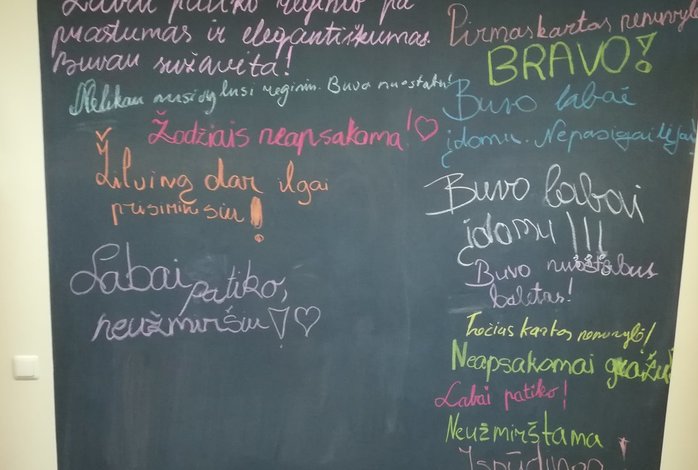 Labai patiko reginio pa
prastumas ir elegantiškumas.
Buvau sužavėta!
nusivylusi reginiu. Buvo nuostabu!
Žodžiais neapsakoma!♡
Žilviną dar ilgai
prisiminsiu!
Labai
patiko,
neužmiršiu!♡
Pirmas kartas nenuvylė
BRAVO!
Buvo labai
įdomu. Nepasigailėjau
Buvo labai
įdomu!!!
Buvo nuostabus
baletas!
Trečias kartas nenuvylė!
Neapsakomai gražu!
Labai patiko!
Neužmirštama!
Įspūdinga!